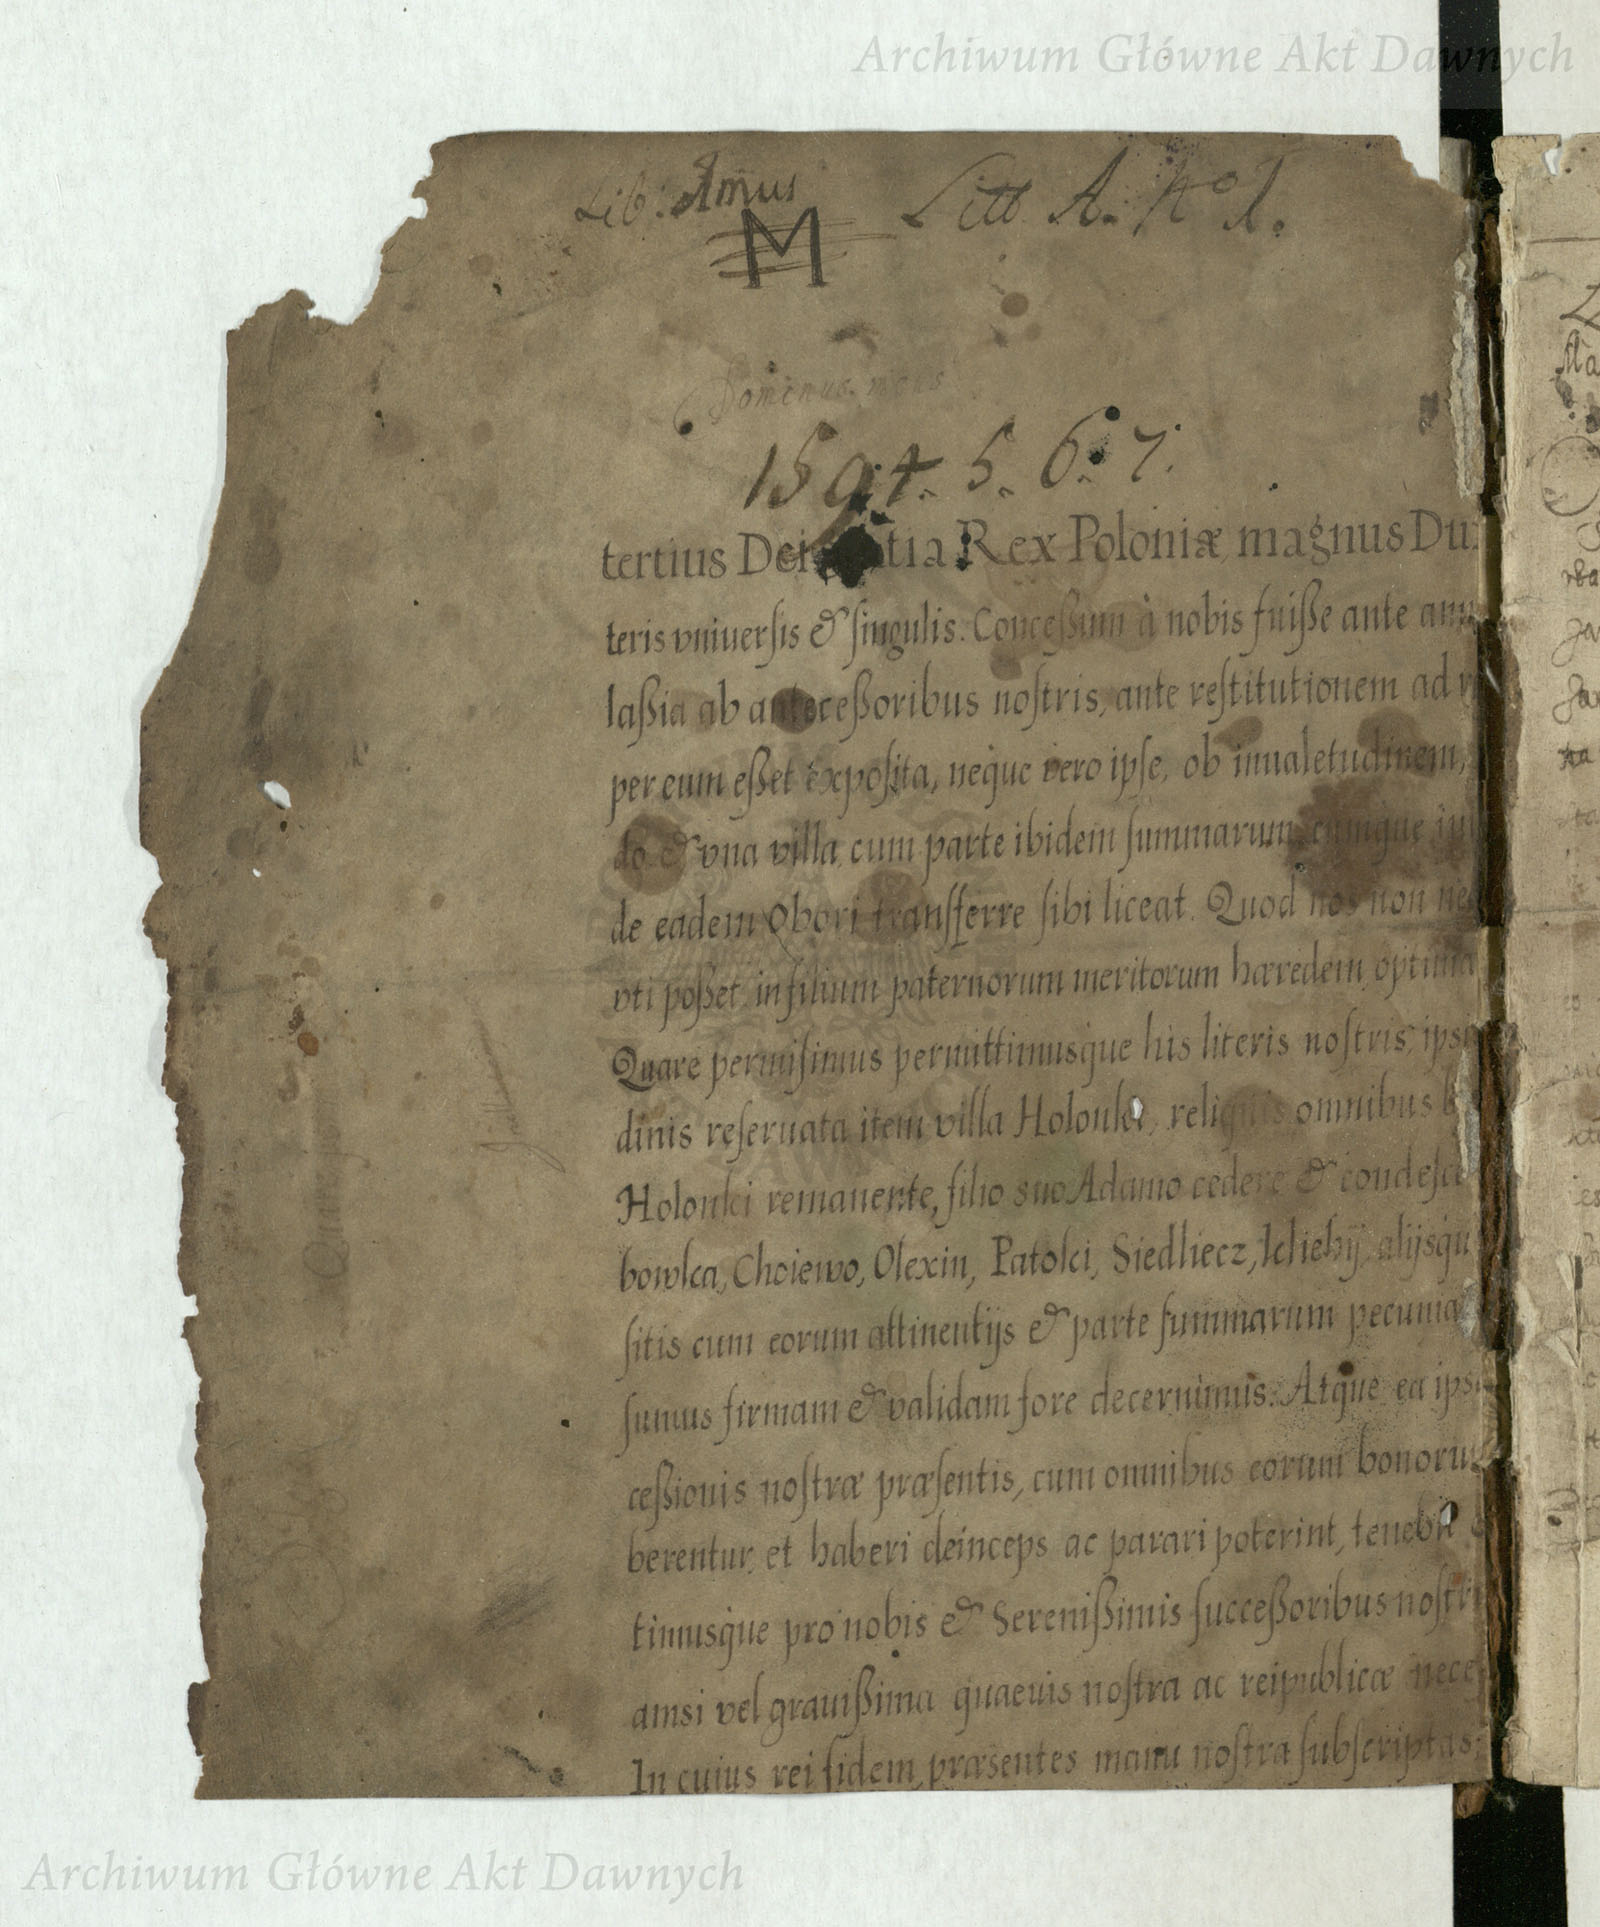 Archiwum Główne Akt Dawnych
Lib: Amus Litt A. No 1.
M
Domenus meus
1594. 5. 6. 7.
tertius Dei tia Rex Poloniæ, magnus Du
teris vniuersis & singulis. Concessum à nobis fuisse ante
lassia ab antecessoribus nostris, ante restitutionem ad
per eum esset exposita, neque vero ipse, ob inualetudinem,
do & vna villa, cum parte ibidem summarum, cumque
de eadem Obori transferre sibi liceat. Quod nos non
vti posset, in filium paternorum meritorum hæredem, optima
Quare permisimus permittimusque his literis nostris, ipsi
dinis reseruata item villa Holonki, reliquis omnibus
Holonki remanente, filio suo Adamo cedere & condesce
bowka, Choiewo, Olexin, Patoki, Siedliecz, Kliehy, alijsqu
sitis cum eorum attinentijs & parte summarum pecunia
sumus firmam & validam fore decernimus. Atque ea ips
cessionis nostræ præsentis, cum omnibus eorum bonoru
berentur, et haberi deinceps ac parari poterint, tenebit
timusque pro nobis & Serenissimis successoribus nostri
amsi vel grauissima quaeuis nostra ac reipublicæ nece
In cuius rei fidem, præsentes manu nostra subscriptas
Archiwum Główne Akt Dawnych